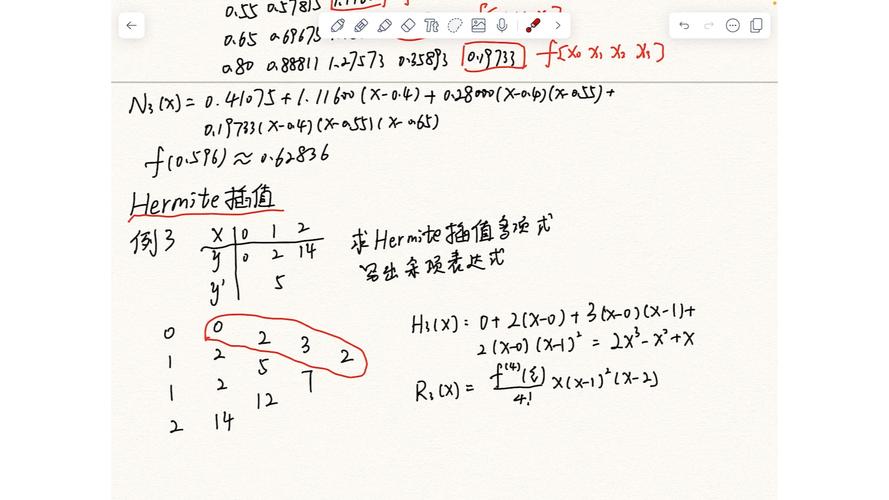 0.55 0.57815
0.65 0.69675
0.80 0.88811 1.27573 0.35893 0.19733 f[x₀ x₁ x₂ x₃]
N₃(x) = 0.41075 + 1.11600(x-0.4) + 0.28000(x-0.4)(x-0.55) +
0.19733(x-0.4)(x-0.55)(x-0.65)
f(0.596) ≈ 0.62836
Hermite插值
例3 x 0 1 2
y 0 2 14
y' 5
求Hermite插值多项式
写出余项表达式
0 0
2
1 2 3
5 2
1 2 7
12
2 14
H₃(x) = 0+2(x-0)+3(x-0)(x-1)+
2(x-0)(x-1)² = 2x³-x²+x
R₃(x) = f⁽⁴⁾(ξ)/4! x(x-1)²(x-2)